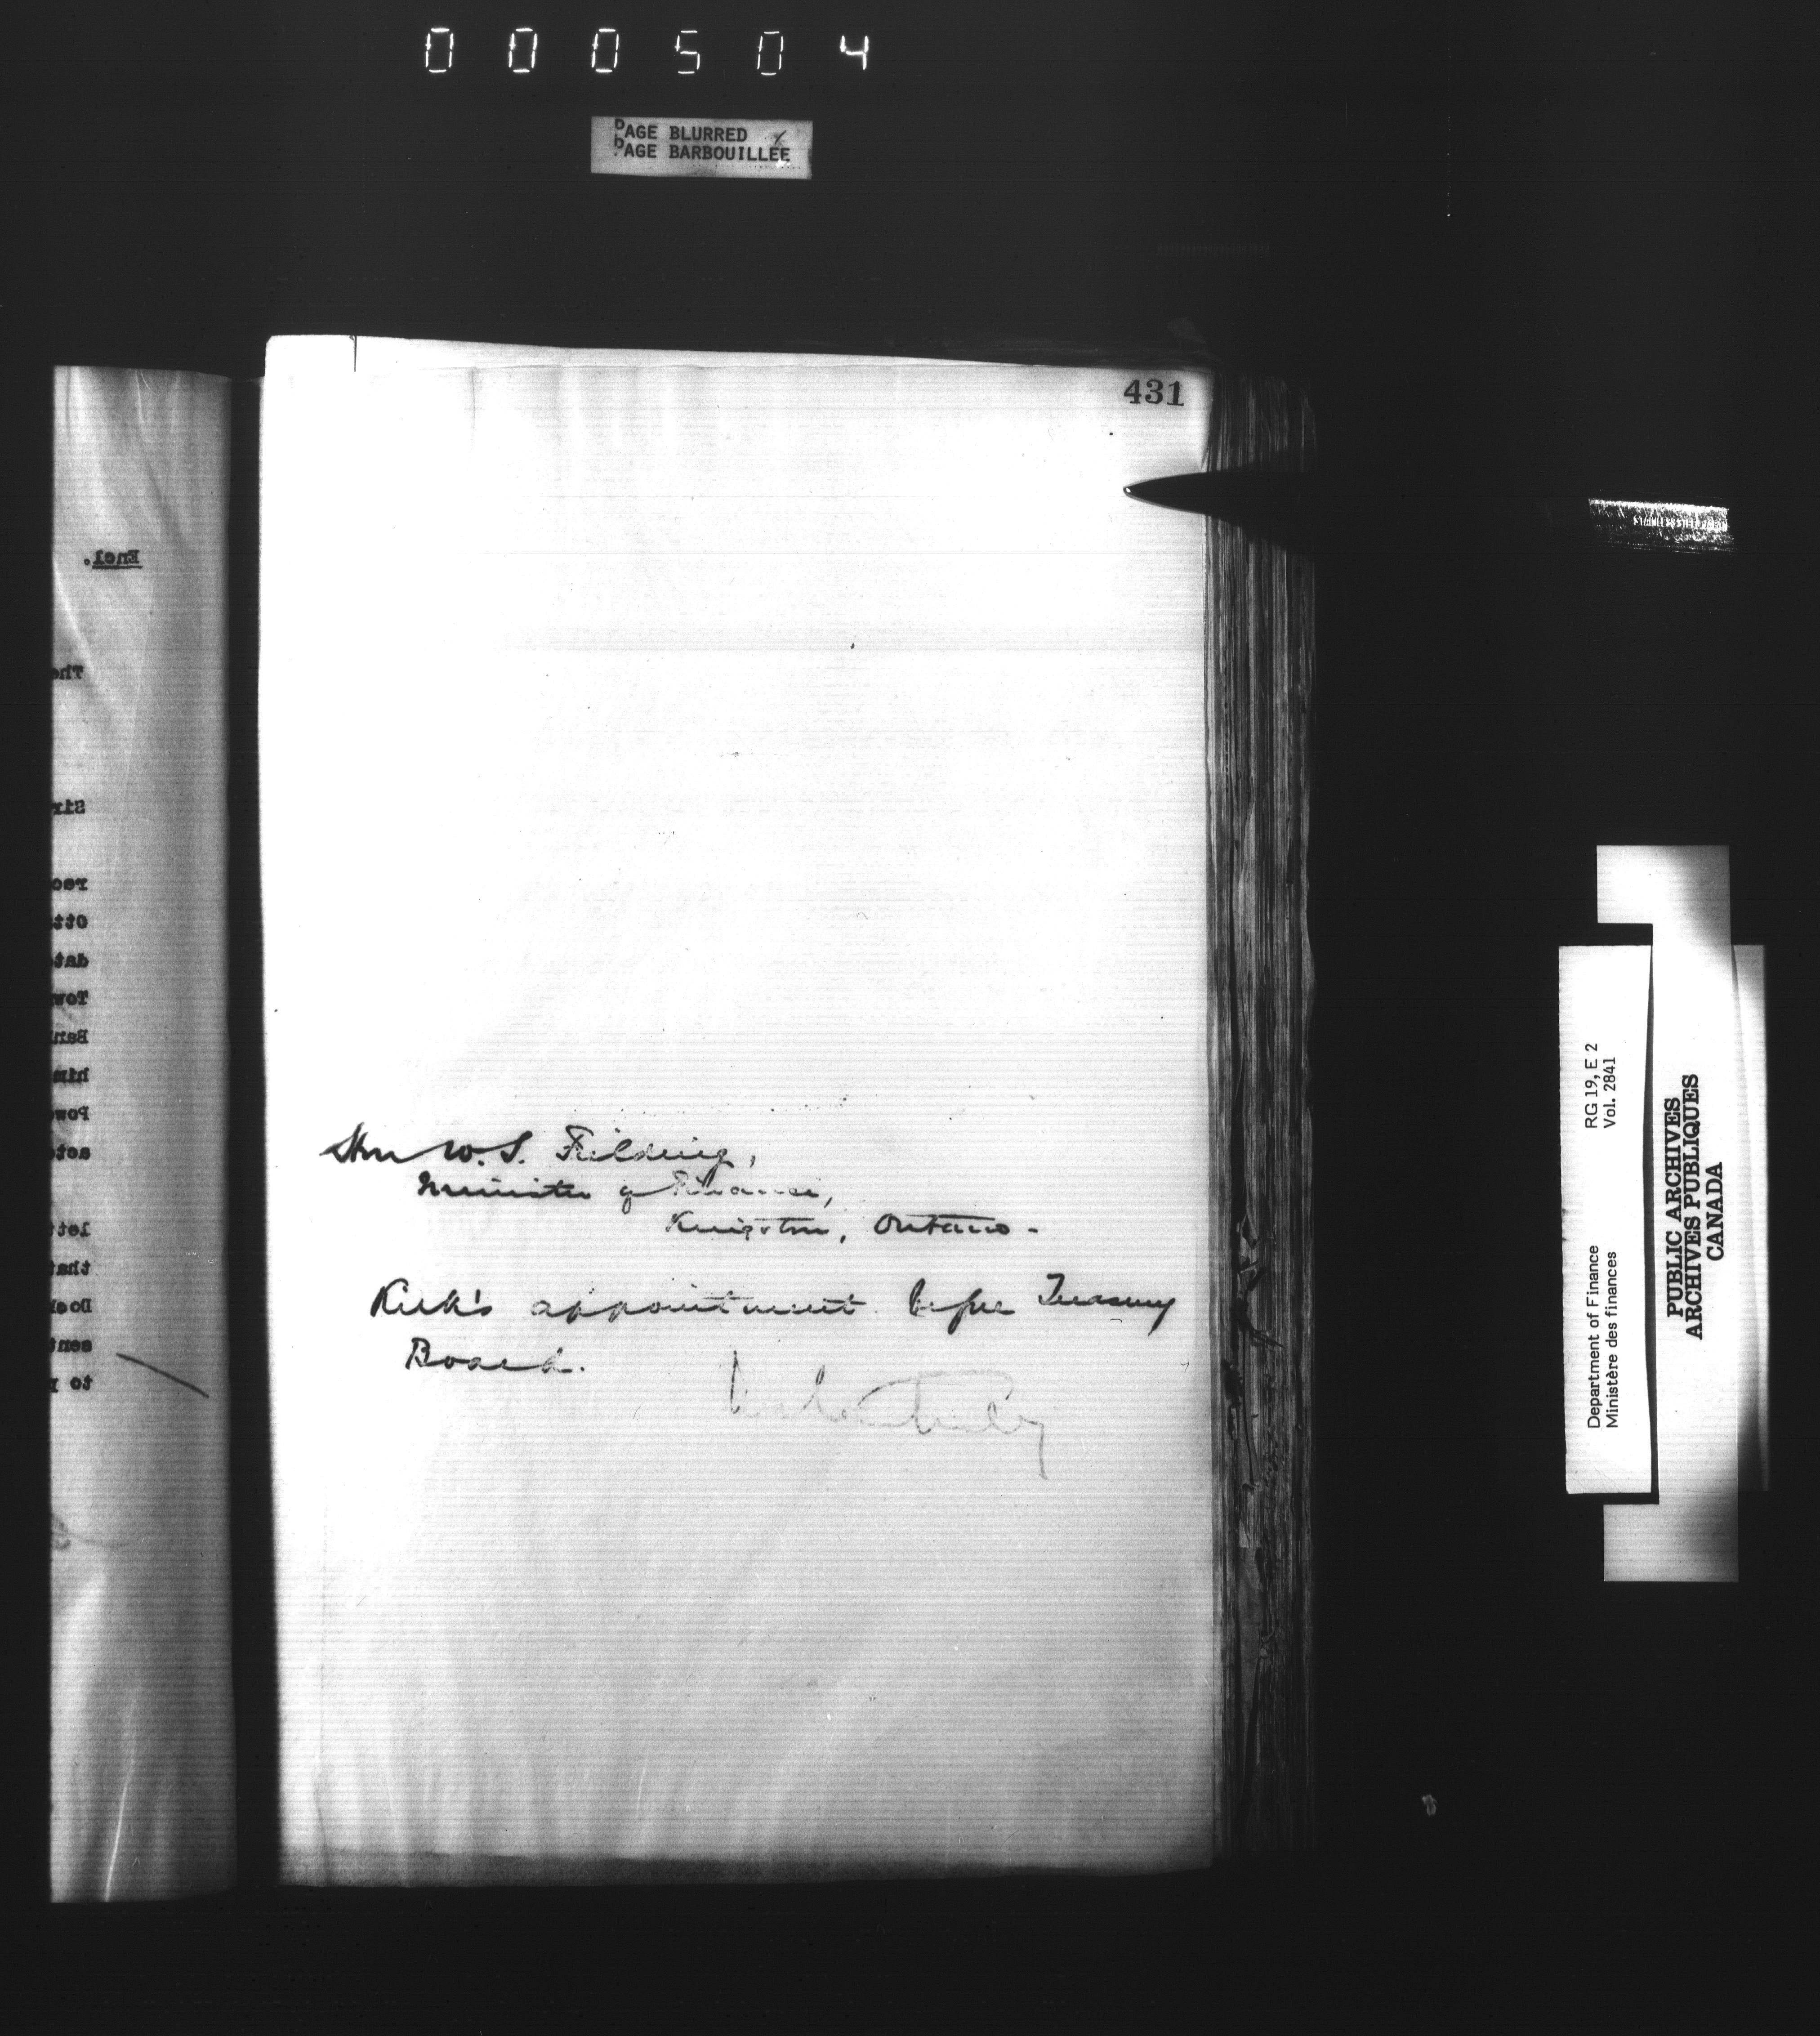 000504
PAGE BLURRED
PAGE BARBOUILLÉE
431
Hon W. S. Fielding,
Minister of Finance,
Kingston, Ontario -
Kirk's appointment before Treasury
Board.
Encl.
The
Sir
rec
otta
date
Tow
Bank
him
Pow
acto
lett
that
Doc
sent
to
Department of Finance
Ministère des finances
RG 19, E 2
Vol. 2841
PUBLIC ARCHIVES
ARCHIVES PUBLIQUES
CANADA